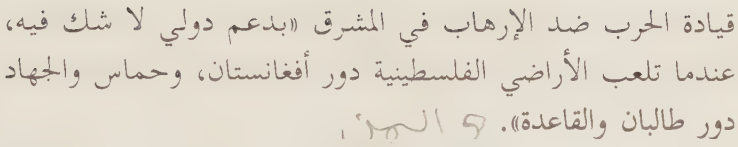 قيادة الحرب ضد الإرهاب في المشرق «بدعم دولي لا شك فيه،
عندما تلعب الأراضي الفلسطينية دور أفغانستان، وحماس والجهاد
دور طالبان والقاعدة».